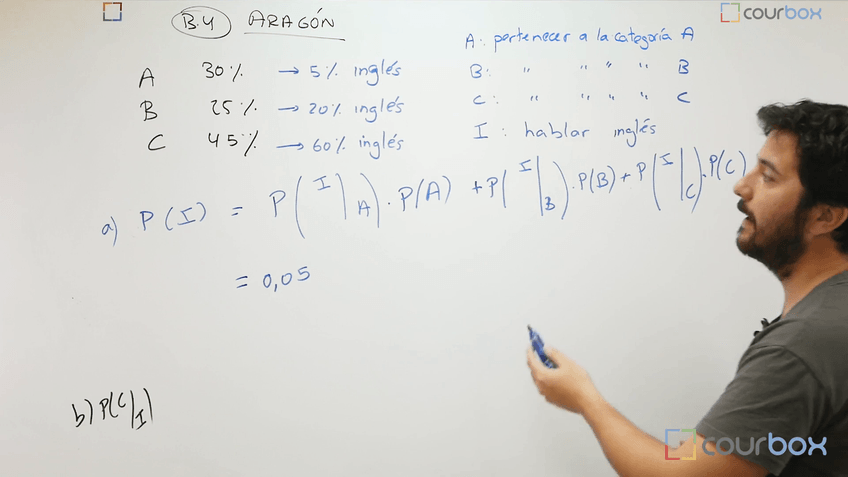 B.4 ARAGÓN
courbox
A 30% → 5% inglés
B 25% → 20% inglés
C 45% → 60% inglés
A: pertenecer a la categoría A
B: " " " " B
C: " " " " C
I: hablar inglés
a) P(I) = P(I|A)·P(A) + P(I|B)·P(B) + P(I|C)·P(C)
= 0,05
b) P(C/I)
courbox